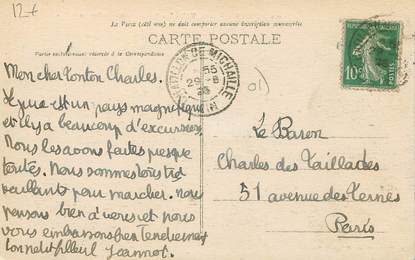 12+
La Partie ci-dessus ne doit comporter aucune inscription manuscrite
CARTE POSTALE
Partie exclusivement réservée à la Correspondance
Mon cher tonton Charles.
Le Jura est un pays magnifique
et il y a beaucoup d'excursions
Nous les avons faites presque
toutes. Nous sommes très
vaillants pour marcher. nous
pensons bien à vous et nous
vous embrassons bien tendrement
ton petit filleul Jeannot.
CHATILLON-DE-MICHAILLE
AIN
29 - 8
10c
POSTES
Le Baron
Charles des Taillades
51 avenue des Ternes
Paris